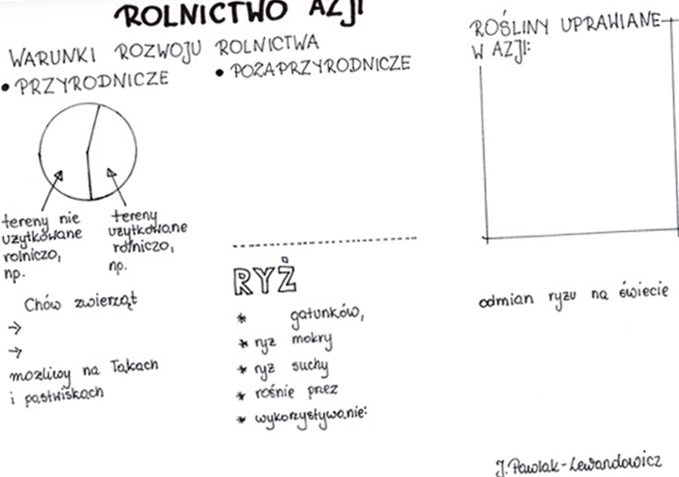 ROLNICTWO AZJI
WARUNKI ROZWOJU ROLNICTWA
• PRZYRODNICZE
• POZAPRZYRODNICZE
tereny nie
użytkowane
rolniczo,
np.
tereny
użytkowane
rolniczo,
np.
Chów zwierząt
→
→
możliwy na łąkach
i pastwiskach
RYŻ
* gatunków,
* ryż mokry
* ryż suchy
* rośnie przez
* wykorzystywanie:
ROŚLINY UPRAWIANE
W AZJI:
odmian ryżu na świecie
J. Pawlak-Lewandowicz